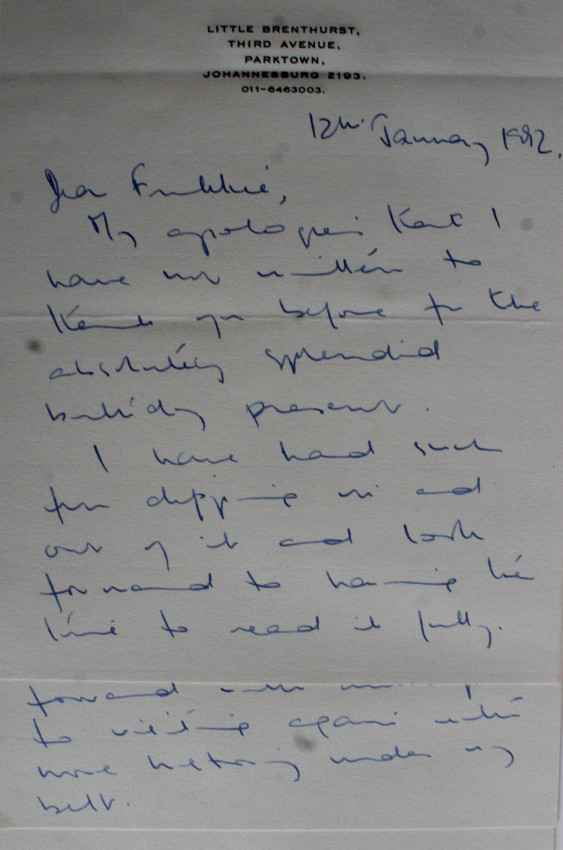 LITTLE BRENTHURST,
THIRD AVENUE,
PARKTOWN,
JOHANNESBURG 2193.
011-6463003.
12th January 1992.
Dear Frankie,
My apologies that I
have not written to
thank you before for the
absolutely splendid
birthday present.
I have had such
fun dipping in and
out of it and look
forward to having the
time to read it fully.
forward with
to visiting again with
more history under my
belt.